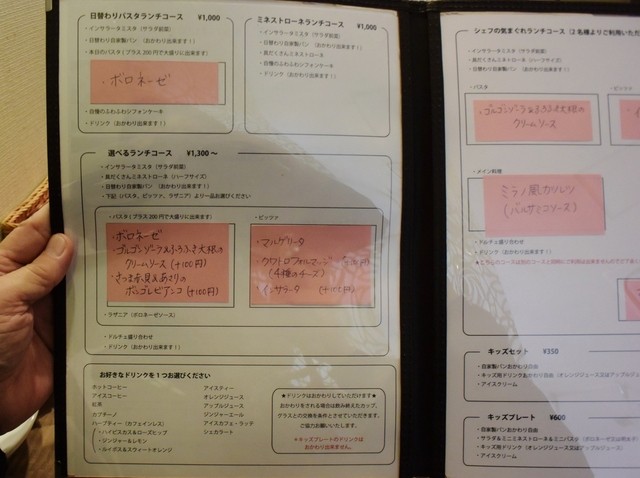 日替わりパスタランチコース　¥1,000
・インサラータミスタ（サラダ前菜）
・日替わり自家製パン（おかわり出来ます！）
・本日のパスタ（プラス200円で大盛りに出来ます）
・ボロネーゼ
・自慢のふわふわシフォンケーキ
・ドリンク（おかわり出来ます！）
ミネストローネランチコース　¥1,000
・インサラータミスタ（サラダ前菜）
・日替わり自家製パン（おかわり出来ます！）
・具だくさんミネストローネ
・自慢のふわふわシフォンケーキ
・ドリンク（おかわり出来ます！）
選べるランチコース　¥1,300～
・インサラータミスタ（サラダ前菜）
・具だくさんミネストローネ（ハーフサイズ）
・日替わり自家製パン（おかわり出来ます！）
・下記（パスタ、ピッツァ、ラザニア）より一品お選びください
・パスタ（プラス200円で大盛りに出来ます）
・ボロネーゼ
・ゴルゴンゾーラ&ふろふき大根の
クリームソース（+100円）
・さつま赤鶏&あさりの
ボンゴレビアンコ（+100円）
・ラザニア（ボロネーゼソース）
・ピッツァ
・マルゲリータ
・クワトロフォルマージ
（4種のチーズ）
・インサラータ（+100円）
・ドルチェ盛り合わせ
・ドリンク（おかわり出来ます！）
お好きなドリンクを1つお選びください
ホットコーヒー
アイスコーヒー
紅茶
カプチーノ
ハーブティー（カフェインレス）
・ハイビスカス&ローズヒップ
・ジンジャー&レモン
・ルイボス&スウィートオレンジ
アイスティー
オレンジジュース
アップルジュース
ジンジャーエール
アイスカフェ・ラッテ
シェカラート
★ドリンクはおかわりしていただけます★
おかわりをされる場合は飲み終えたカップ、
グラスとの交換を条件とさせていただきます。
ご協力お願いいたします。
※キッズプレートのドリンクは
おかわり出来ません。
シェフの気まぐれランチコース（2名様よりご利用いただ
・インサラータミスタ（サラダ前菜）
・具だくさんミネストローネ（ハーフサイズ）
・日替わり自家製パン（おかわり出来ます！）
・パスタ
・ゴルゴンゾーラ&ふろふき大根の
クリームソース
・ピッ
・メイン料理
ミラノ風カツレツ
（バルサミコソース）
・ドルチェ盛り合わせ
・ドリンク（おかわり出来ます！）
キッズセット　¥350
・自家製パンおかわり自由
・キッズ用ドリンクおかわり自由（オレンジジュース又はアップルジュー
・アイスクリーム
キッズプレート　¥600
・自家製パンおかわり自由
・サラダ&ミニミネストローネ&ミニパスタ
・キッズ用ドリンク（オレンジジュース又はアップルジュース）
・アイスクリーム